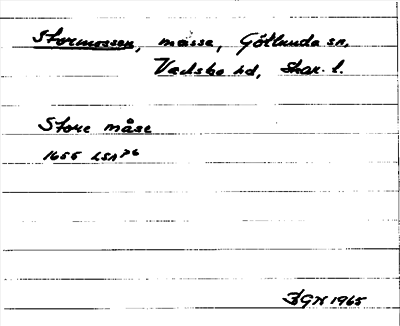 Stormossen, mosse, Götlunda sn,
Vadsbo hd, Skar. l.
Store måse
1655 LSA P6
BGN 1965